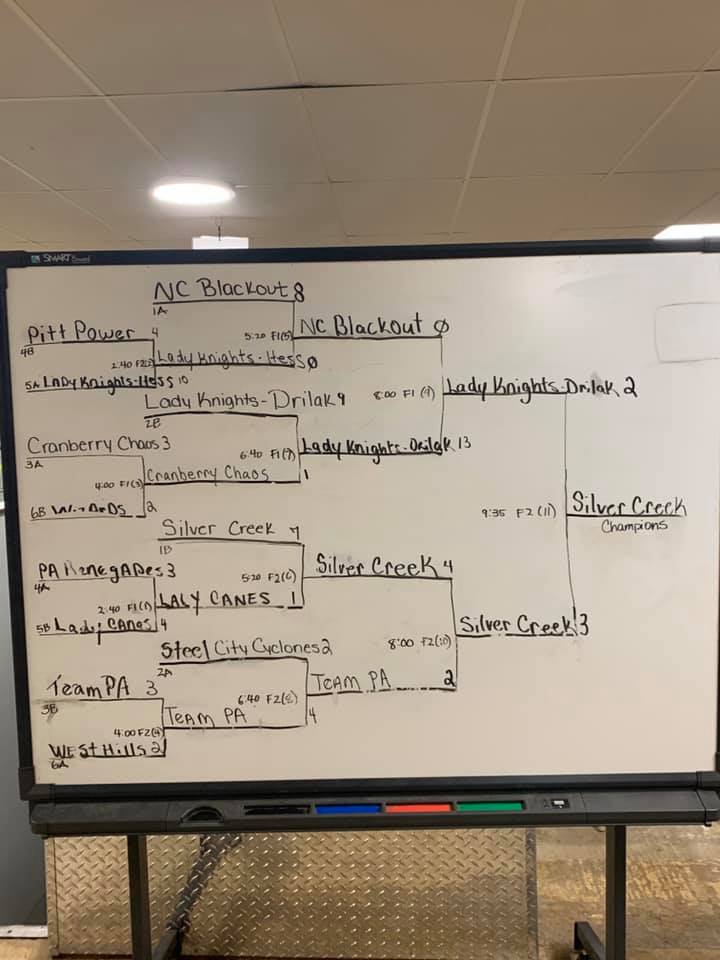 SMART Board
NC Blackout 8
1A
Pitt Power 4
4B
5:20 F1(5)
NC Blackout 0
2:40 F2(2)
Lady Knights-Hess 0
5A Lady Knights-Hess 10
8:00 F1 (9)
Lady Knights-Drilak 2
Lady Knights-Drilak 9
2B
Cranberry Chaos 3
3A
6:40 F1(7)
Lady Knights-Drilak 13
4:00 F1(3)
Cranberry Chaos 1
6B 2
9:35 F2 (11)
Silver Creek
Champions
Silver Creek 7
1B
PA Renegades 3
4A
5:20 F2(6)
Silver Creek 4
2:40 F1(1)
LADY CANES 1
5B Lady Canes 4
8:00 F2(10)
Silver Creek 3
Steel City Cyclones 2
2A
Team PA 3
3B
6:40 F2(8)
Team PA 2
4:00 F2(4)
Team PA 4
West Hills 2
6A